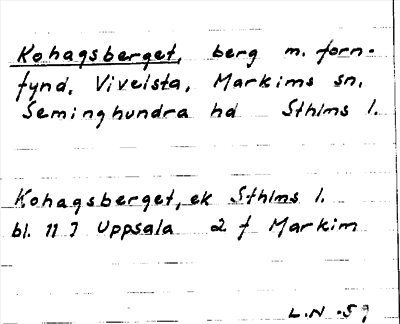 Kohagsberget, berg m. forn-
fynd. Vivelsta, Markims sn,
Seminghundra hd Sthlms l.
Kohagsberget, ek Sthlms l.
bl. 11 I Uppsala 2 f Markim
L.N. 59